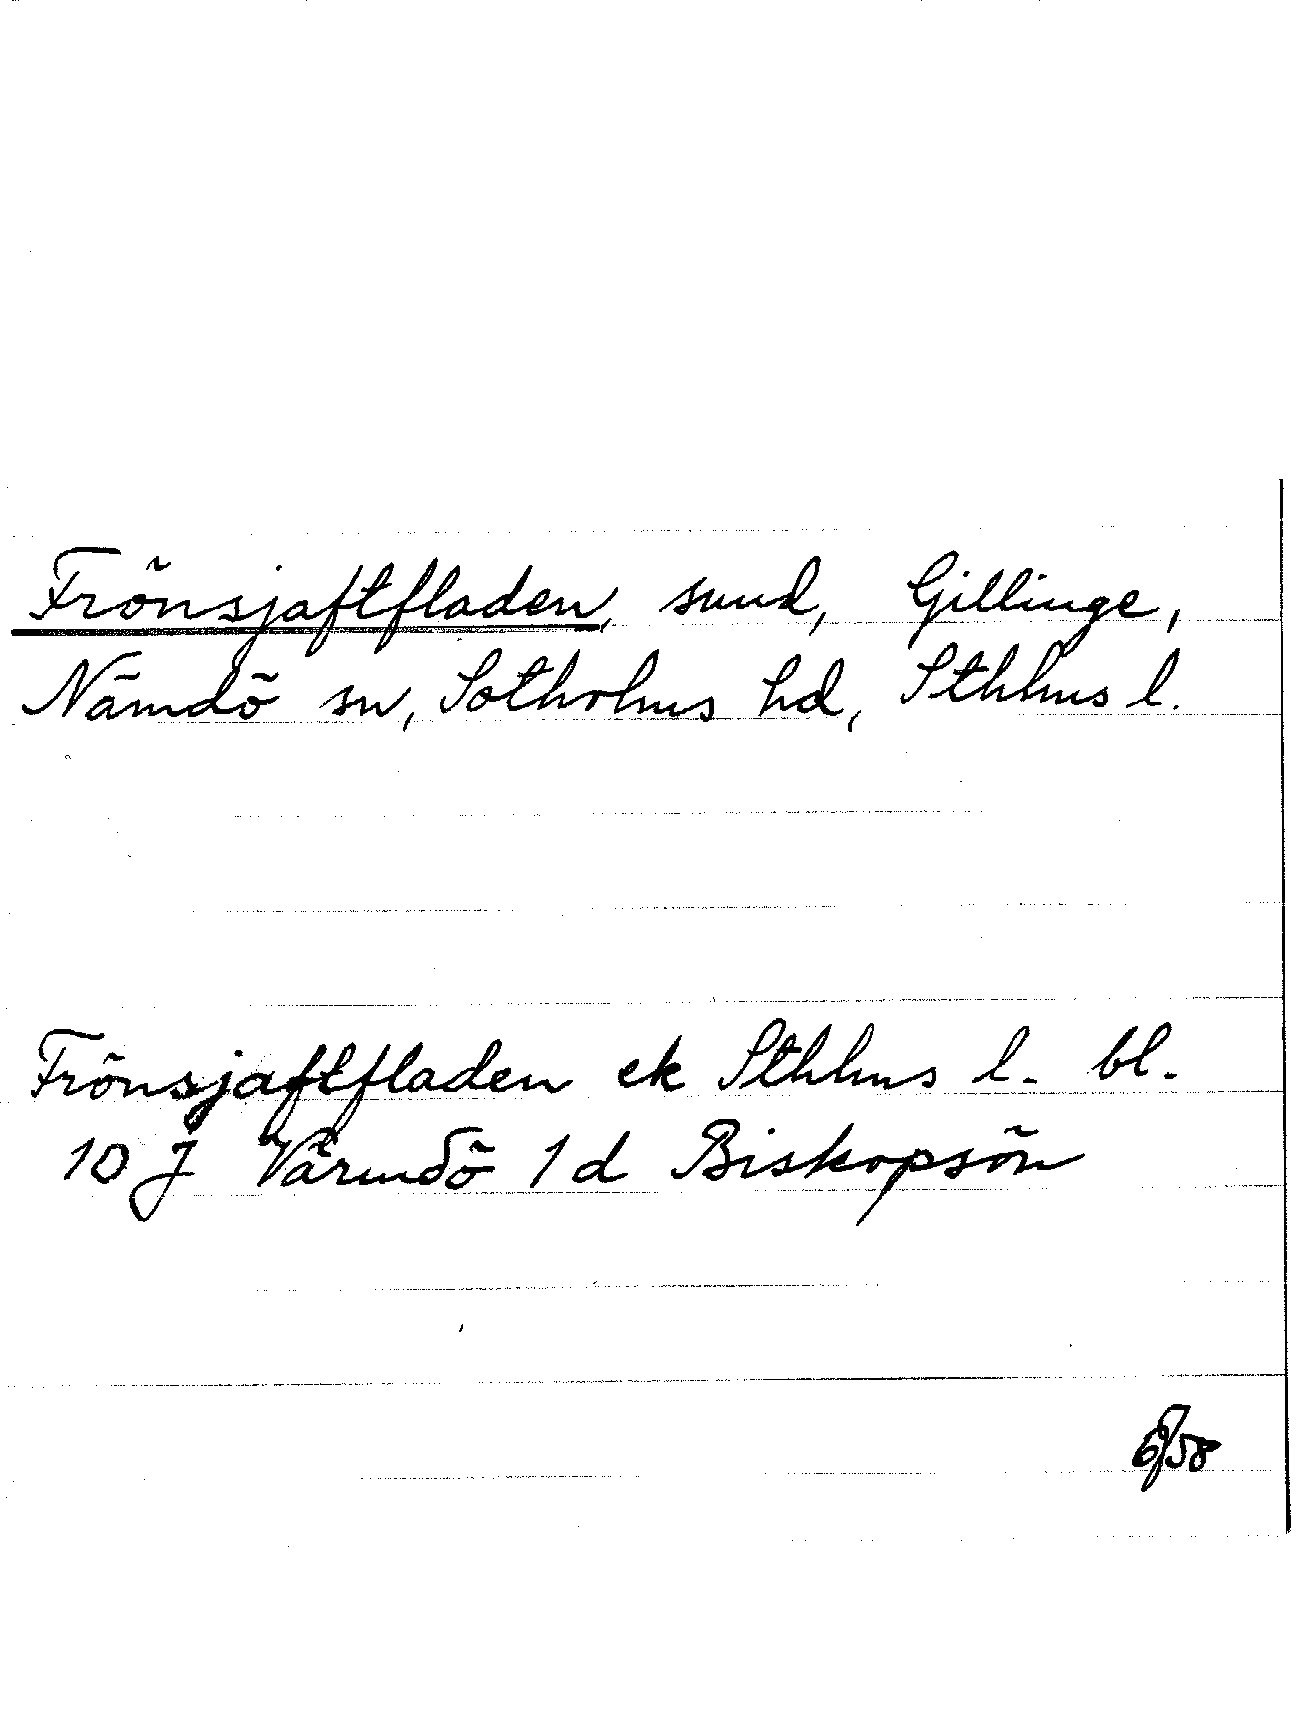 Frönsjaftfladen, sund, Gillinge,
Nämdö sn, Sotholms hd, Sthlms l.
Frönsjaftfladen ek Sthlms l. bl.
10 J Värmdö 1 d Biskopsön